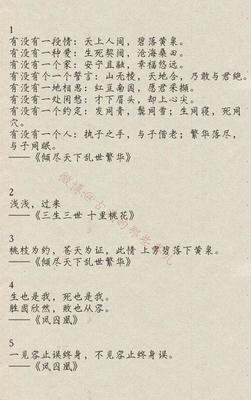 1
有没有一段情：天上人间，碧落黄泉。
有没有一种爱：生死契阔，沧海桑田。
有没有一个家：安宁且融，幸福悠远。
有没有个一个誓言：山无棱，天地合，乃敢与君绝。
有没有一地相思：红豆南国，愿君采撷。
有没有一处闲愁：才下眉头，却上心尖。
有没有一个约定：发同青，鬓同雪；生同寝，死同
穴。
有没有一个人：执子之手，与子偕老；繁华落尽，
与子同眠。
——《倾尽天下乱世繁华》
2
浅浅，过来
——《三生三世 十里桃花》
3
桃枝为约，苍天为证，此情 上穷碧落下黄泉。
——《倾尽天下乱世繁华》
4
生也是我，死也是我。
胜固欣然，败也从容。
——《凤囚凰》
5
一见容止误终身，不见容止终身误。
——《凤囚凰》